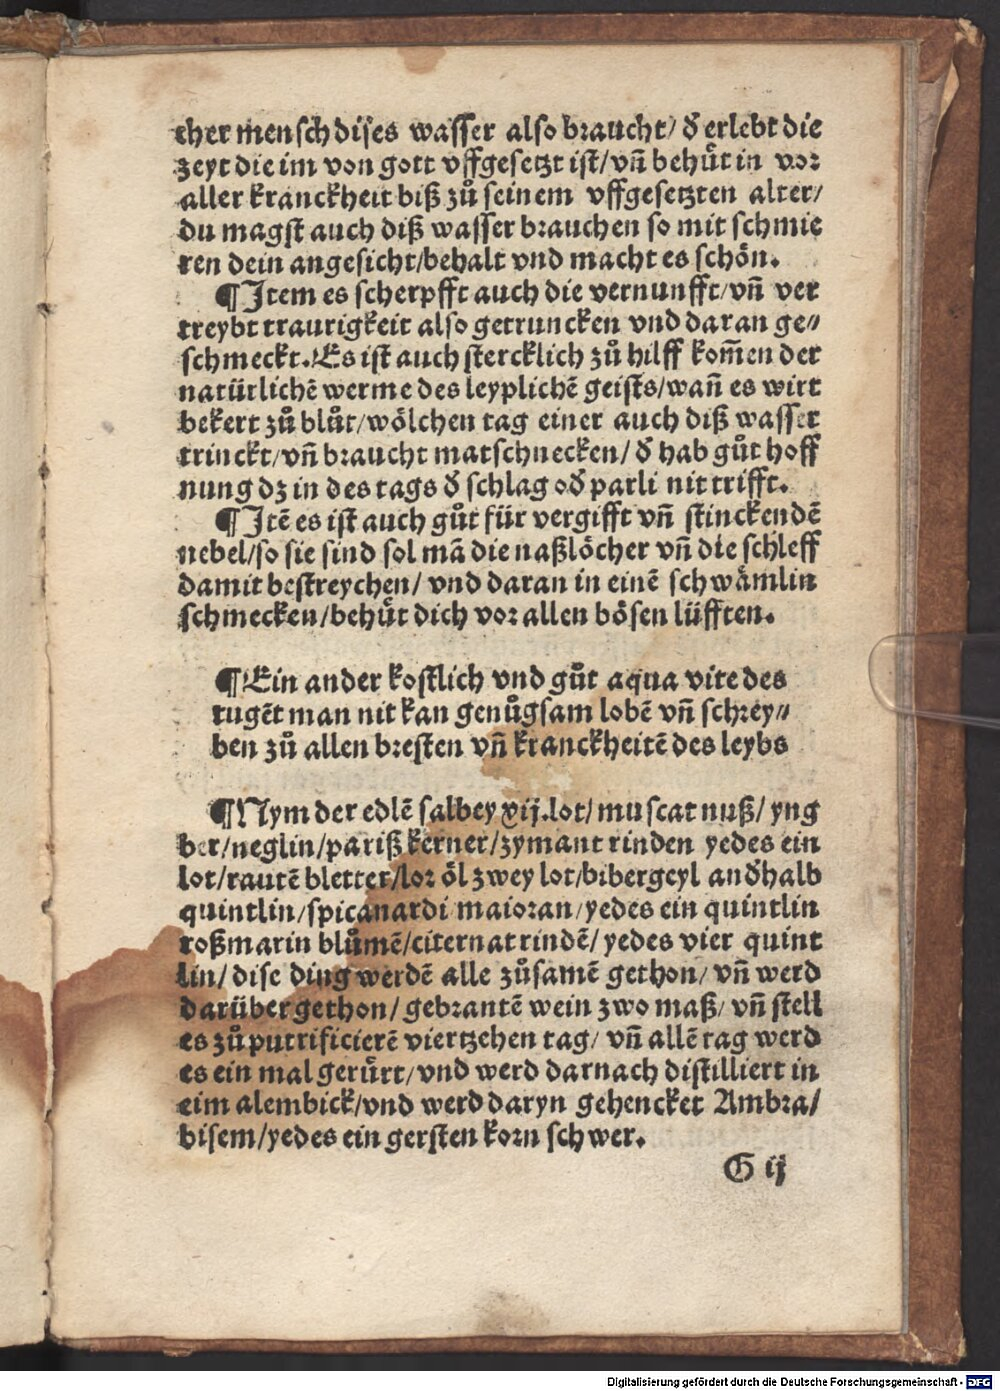 cher mensch dises wasser also braucht/ d̕ erlebt die
zeyt die im von gott vffgesetzt ist/vn̄ behuͤt in vor
aller kranckheit biß zuͦ seinem vffgesetzten alter/
du magst auch diß wasser brauchen so mit schmie
ren dein angesicht/behalt vnd macht es schoͤn.
¶Item es scherpfft auch die vernunfft/vn̄ ver
treybt traurigkeit also getruncken vnd daran ge⸗
schmeckt.Es ist auch stercklich zuͦ hilff kom̄en der
natürlichē werme des leyplichē geists/wan̄ es wirt
bekert zuͦ bluͦt/woͤlchen tag einer auch diß wasser
trinckt/vn̄ braucht matschnecken/ d̕ hab guͦt hoff
nung dz in des tags d̕ schlag od̕ parli nit trifft.
¶Itē es ist auch guͦt für vergifft vn̄ stinckendē
nebel/so sie sind sol mā die naßloͤcher vn̄ die schleff
damit bestreychen/ vnd daran in einē schwaͤmlin
schmecken/behuͤt dich vor allen boͤsen lüfften.
¶Ein ander kostlich vnd guͦt aqua vite des
tugēt man nit kan genuͦgsam lobē vn̄ schrey⸗
ben zuͦ allen bresten vn̄ kranckheitē des leybs
¶Nym der edlē salbey xij.lot/ muscat nuß/ yng
ber/neglin/pariß kerner/zymant rinden yedes ein
lot/rautē bletter/lor oͤl zwey lot/bibergeyl and̕halb
quintlin/spicanardi maioran/yedes ein quintlin
roßmarin bluͦmē/citernat rindē/ yedes vier quint
lin/ dise ding werdē alle zuͦsamē gethon/ vn̄ werd
darüber gethon/ gebrantē wein zwo maß/ vn̄ stell
es zuͦ putrificierē viertzehen tag/ vn̄ allē tag werd
es ein mal geruͤrt/vnd werd darnach distilliert in
eim alembick/vnd werd daryn gehencket Ambra/
bisem/yedes ein gersten korn schwer.
G ij
Digitalisierung gefördert durch die Deutsche Forschungsgemeinschaft - DFG